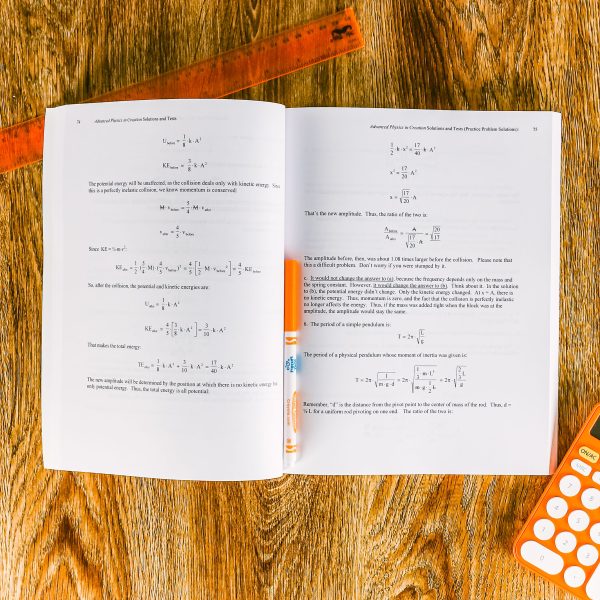 74 Advanced Physics in Creation Solutions and Tests
U before = 1/8 · k · A²
KE before = 3/8 · k · A²
The potential energy will be unaffected, as the collision deals only with kinetic energy. Since
this is a perfectly inelastic collision, we know momentum is conserved:
M · v before = 5/4 · M · v after
v after = 4/5 · v before
Since KE = ½·m·v²:
KE after = 1/2 · (5/4 · M) · (4/5 · v before)² = 4/5 · [1/2 · M · v before²] = 4/5 · KE before
So, after the collision, the potential and kinetic energies are:
U after = 1/8 · k · A²
KE after = 4/5 · [3/8 · k · A²] = 3/10 · k · A²
That makes the total energy:
TE after = 1/8 · k · A² + 3/10 · k · A² = 17/40 · k · A²
The new amplitude will be determined by the position at which there is no kinetic energy
only potential energy. Thus, the total energy is all potential:
Advanced Physics in Creation Solutions and Tests (Practice Problem Solutions) 75
1/2 · k · x² = 17/40 · k · A²
x² = 17/20 · A²
x = √(17/20) · A
That's the new amplitude. Thus, the ratio of the two is:
A before / A after = A / (√(17/20) · A) = √(20/17)
The amplitude before, then, was about 1.08 times larger before the collision. Please note that
this a difficult problem. Don't worry if you were stumped by it.
c. It would not change the answer to (a), because the frequency depends only on the mass and
the spring constant. However, it would change the answer to (b). Think about it. In the solution
to (b), the potential energy didn't change. Only the kinetic energy changed. At x = A, there is
no kinetic energy. Thus, momentum is zero, and the fact that the collision is perfectly inelastic
no longer affects the energy. Thus, if the mass was added right when the block was at the
amplitude, the amplitude would stay the same.
8. The period of a simple pendulum is:
T = 2π · √(L/g)
The period of a physical pendulum whose moment of inertia was given is:
T = 2π · √(I/(m·g·d)) = 2π · √((1/3 · m · L²)/(m · g · 1/2 · L)) = 2π · √((2/3 · L)/g)
Remember, "d" is the distance from the pivot point to the center of mass of the rod. Thus, d =
½·L for a uniform rod pivoting on one end. The ratio of the two is:
ON/AC
7
8
4
5
1
2
0